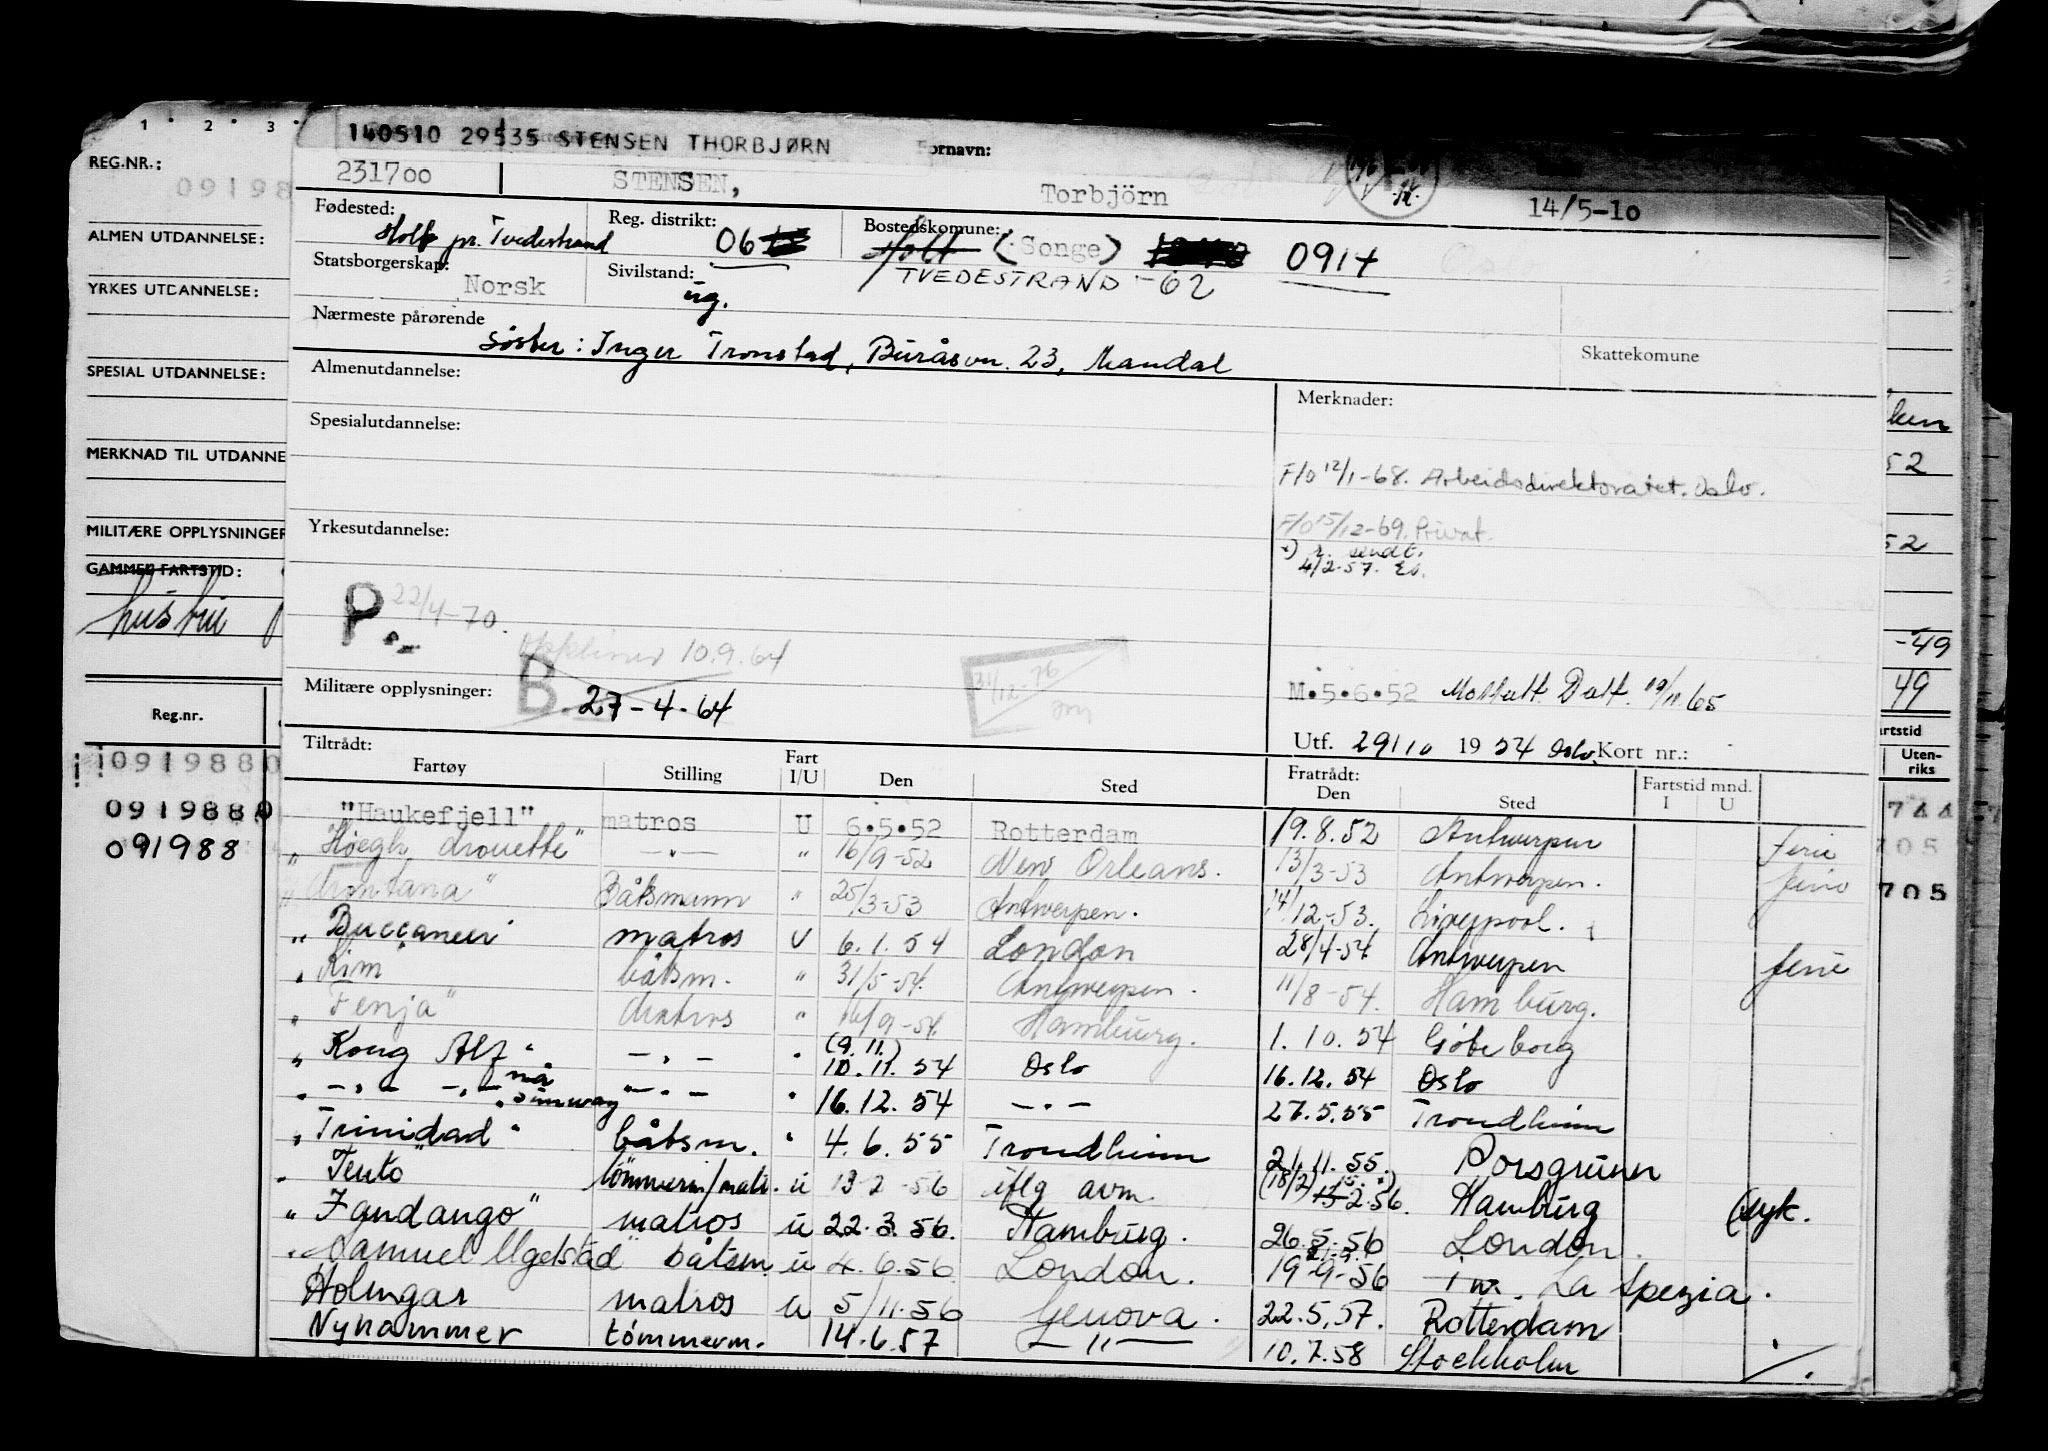 1 . 2 . 3 .
REG.NR.:
09198
ALMEN UTDANNELSE:
YRKES UTDANNELSE:
SPESIAL UTDANNELSE:
MERKNAD TIL UTDANNE
MILITÆRE OPPLYSNINGER
GAMMEL FARTSTID:
Reg.nr.
0919880
0919880
091988
140510 29535 STENSEN THORBJØRN
ornavn:
231700 STENSEN, Torbjörn 14/5-10
Fødested: Holt pr. Tvedestrand Reg. distrikt: 06 Bostedskomune: Holt (Songe) 0914
Statsborgerskap: Norsk Sivilstand: ug. TVEDESTRAND -62
Nærmeste pårørende
Søster: Inger Tronstad, Buråsvn. 23, Mandal
Skattekomune
Almenutdannelse:
Merknader:
Spesialutdannelse:
F/O 12/1-68. Arbeidsdirektoratet. Oslo.
Yrkesutdannelse:
F/O 15/12-69. Privat.
sendt.
4/2-57.
P 22/4-70.
10.9.64
31/12-76
Militære opplysninger: B 27-4-64
M.5.6.52 Mottatt Datt. 19/11.65
Utf. 29/10 1954 Oslo. Kort nr.:
Tiltrådt:
Fartøy Stilling Fart I/U Den Sted Fratrådt: Den Sted Fartstid mnd. I U
"Haukefjell" matros U 6.5.52 Rotterdam 19.8.52 Antwerpen ferie
" Høegh drouette" -"- " 16/9-52 New Orleans. 13/3-53 Antwerpen. ferie
Båtsmann " 25/3-53 Antwerpen. 14/12-53. Liverpool.
" Buccaneer matros U 6.1.54 London 28/4-54 Antwerpen ferie
" Kim båtsm. " 31/5-54. Antwerpen. 11/8-54. Hamburg.
" Fenja" Matros " 16/9-54. Hamburg. 1.10.54 Gøteborg
" Kong Alf" -"- " (9.11.) 10.11.54 Oslo 16.12.54 Oslo
" -"- -"- nå "Simway" -"- " 16.12.54 -"- 27.5.55 Trondheim
" Trinidad" båtsm. " 4.6.55 Trondheim 21.11.55. Porsgrunn
" Tento" tömmerm/matr. u 13 2 -56 iflg avm. (18/2) 2.56. Hamburg (syk.
" Fandango" matros u 22.3.56. Hamburg. 26.5.56 London.
" Samuel Ugelstad" båtsm. u 4.6.56 London. 19-9-56 La Spezia.
Holmgar matros u 5/11.56 Genova. 22.5.57. Rotterdam
Nyhammer tömmerm. 14.6.57 -"- 10.7.58 Stockholm
52
52
-49
49
Uten-
riks
744
705
705